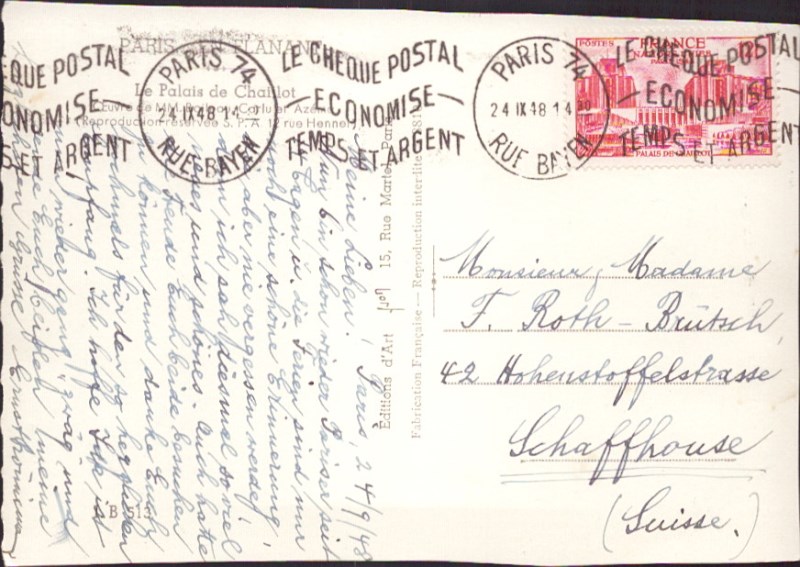 PARIS EN FLANANT
Le Palais de Chaillot
Œuvre de MM. Carlu et Azéma
(Reproduction réservée S. P. A. 12 rue Henner)
LE CHEQUE POSTAL
ECONOMISE
TEMPS ET ARGENT
PARIS 74
24 IX 48 14 30
RUE BAYEN
LE CHEQUE POSTAL
ECONOMISE
TEMPS ET ARGENT
PARIS 74
24 IX 48 14 30
RUE BAYEN
LE CHEQUE POSTAL
ECONOMISE
TEMPS ET ARGENT
POSTES FRANCE
PALAIS DE CHAILLOT
Paris, 24/9/48
Meine Lieben!
Nun bin schon wieder Pariser seit
Tagen u. die Ferien sind nur
noch eine schöne Erinnerung,
die ich aber nie vergessen werde,
denn ich sah diesmal so viel
und schönes. Auch hatte
Freude Euch beide besuchen
zu können und danke Euch
nochmals für den so herzlichen
Empfang. Ich hoffe Ihr ist
wieder ganz "zwäg" und
Euch meine
Grüsse
Éditions d'Art Yvon 15, Rue Martel, Paris
Fabrication Française — Reproduction interdite
Monsieur, Madame
F. Roth - Brütsch,
42 Hohenstoffelstrasse
Schaffhouse
(Suisse.)